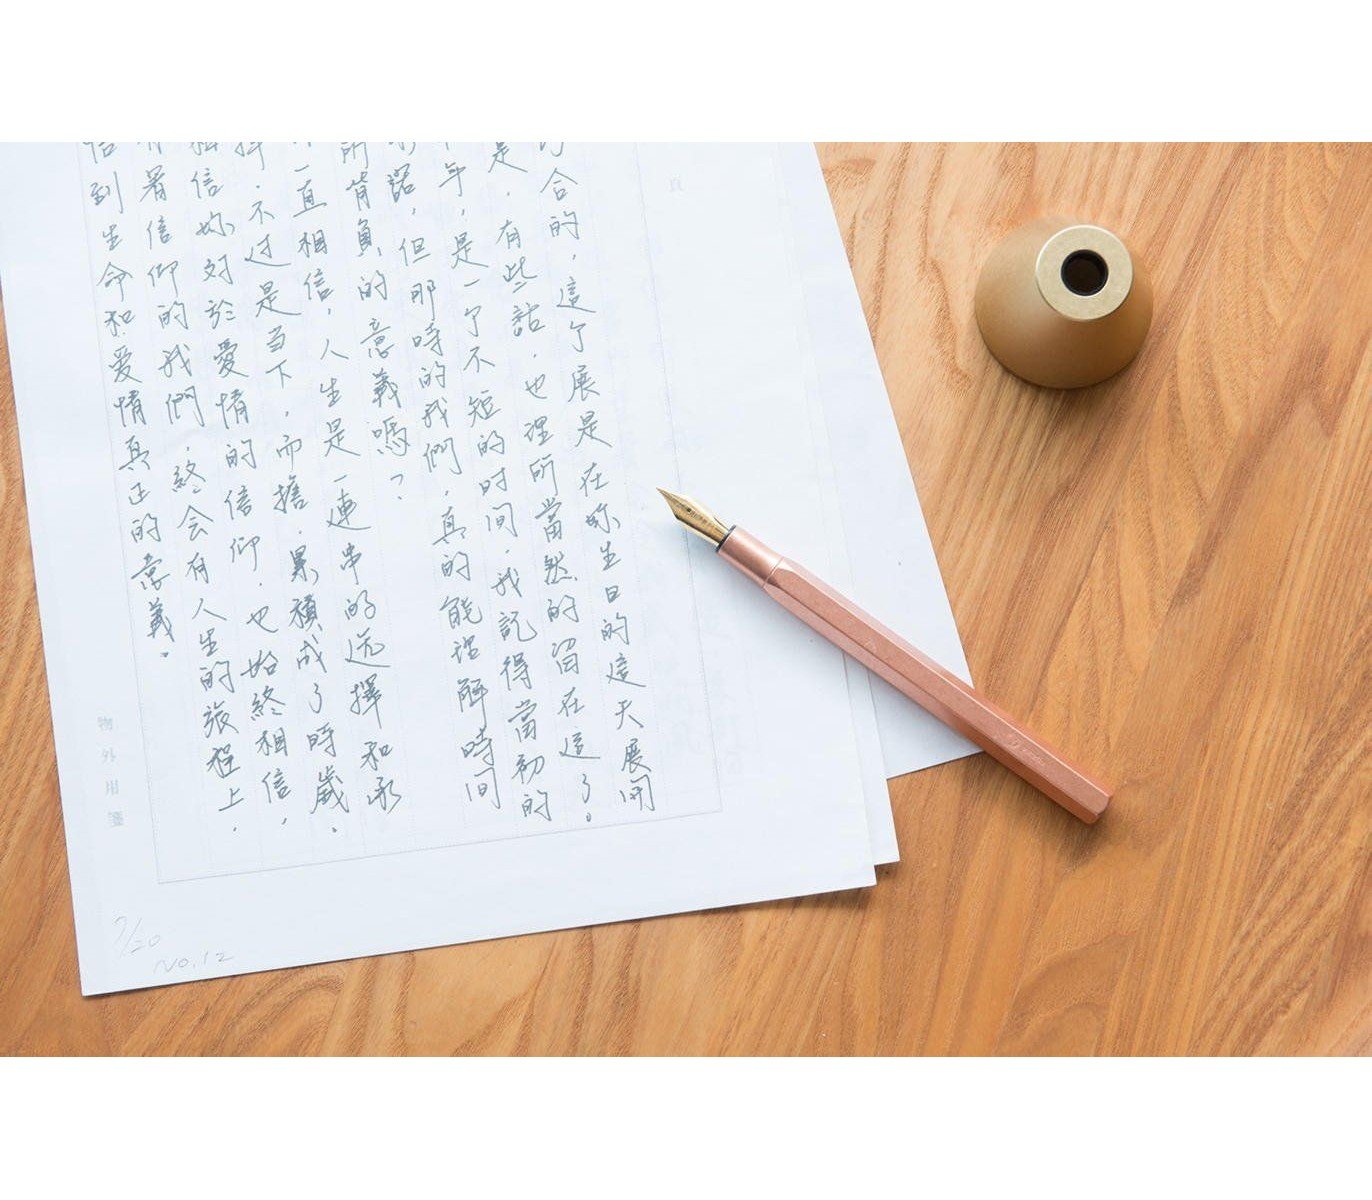 合的，這个展是在妳生日的這天展開
是，有些話，也理所當然的留在這了。
年，是一个不短的时间，我記得當初的
諾，但那時的我們，真的能理解時间
所背負的意義嗎？
一直相信，人生是一連串的选擇和承
擇，不过是当下，而擔，累積成了時歲，
相信妳对於愛情的信仰，也始終相信，
着信仰的我們，終会有人生的旅程上，
悟到生命和爱情真正的意義。
物外用箋
7/20
NO.12
頁